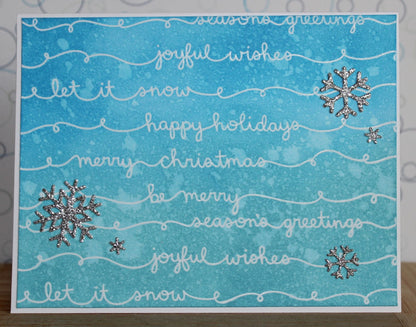 season's greetings
joyful wishes
let it snow
happy holidays
merry christmas
be merry
season's greetings
joyful wishes
let it snow